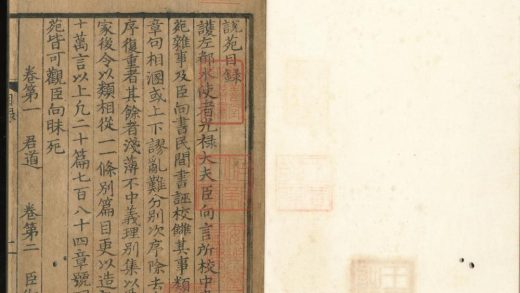 說苑目録
護左都水使者光禄大夫臣向言所校中
苑雜事及臣向書民間書誣校雠其事類
章句相溷或上下謬亂難分别次序除去
序復重者其餘者淺薄不中義理别集以
家後令以類相從一一條别篇目更以造
十萬言以上凡二十篇七百八十四章號
苑皆可觀臣向昧死
卷第一 君道 卷第二 臣
目録